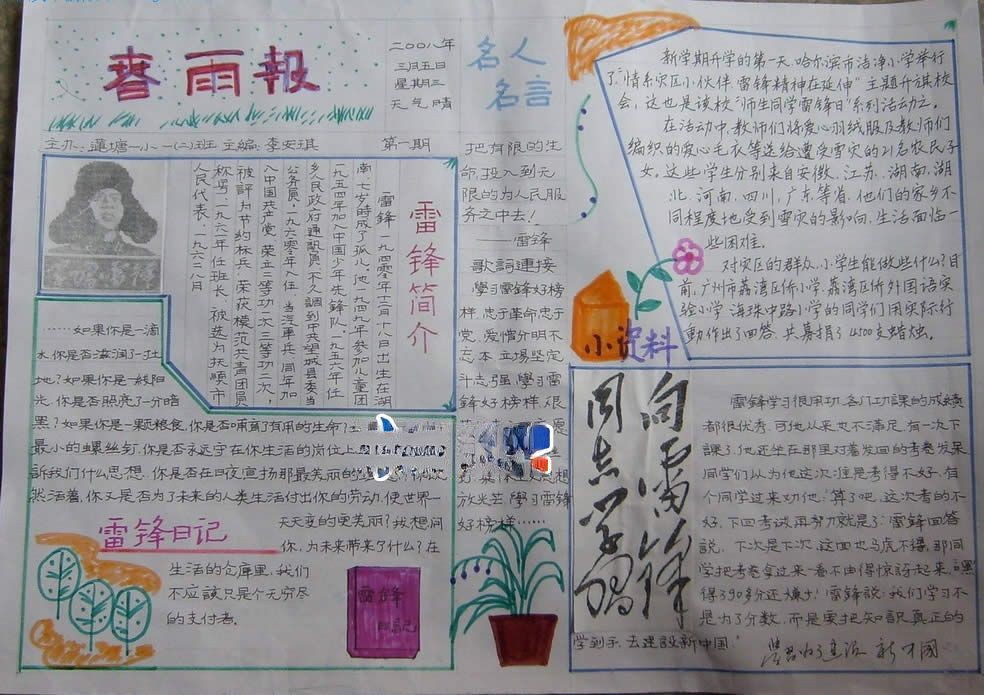 春雨報
二〇〇八年
三月五日
星期三
天气晴
主办:蓮塘一小一(二)班 主編:李安琪 第一期
名人
名言
把有限的生
命,投入到无
限的为人民服
务之中去!
——雷锋
歌詞連接
學习雷锋好榜
样,忠于革命忠于
党,爱憎分明不
忘本,立場坚定
斗志强,學习雷
锋好榜样,
放光芒,學习雷锋
好榜样……
雷锋简介
雷锋,一九四〇年十二月十八日出生在湖
南,七岁時成了孤儿。他,一九四九年参加儿童团
一九五四年加入中国少年先鋒队,一九五六年任
乡人民政府通訊員,不久調到中共望城县委当
公务員,一九六〇年入伍,当汽車兵,同年加
入中国共产党,荣立二等功一次,三等功二次,
被評为节約标兵,荣获模范共青团員
称号,一九六一年任班长,被选为抚順市
人民代表,一九六二八月
……如果你是一滴
水,你是否滋润了一寸土
地?如果你是一线阳
光,你是否照亮了一分暗
黑?如果你是一颗粮食,你是否哺育了有用的生命?
最小的螺丝钉,你是否永远守在你生活的岗位上
訴我们什么思想,你是否在日夜宣扬那最美丽的
活着,你又是否为了未来的人类生活付出你的劳动,使世界一
天天变的更美丽?我想問
你,为未来带来了什么?在
生活的仓库里,我们
不应該只是个无穷尽
的支付者。
雷锋日记
雷锋
日記
新学期开学的第一天,哈尔滨市洁净小学举行
了"情系灾区小伙伴,雷锋精神在延伸"主题升旗校
会,这也是该校"师生同学雷锋日"系列活动之一。
在活动中,教师们将爱心羽绒服及教师们
编织的爱心毛衣等送给遭受雪灾的21名农民子
女,这些学生分别来自安徽、江苏、湖南、湖
北、河南、四川、广东等省,他们的家乡不
同程度地受到雪灾的影响,生活面临一
些困难。
对灾区的群众,小学生能做些什么?目
前,广州市荔湾区侨小学、荔湾区侨外国语实
验小学、海珠中路小学的同学们用实际行
動作出了回答,共募捐了4500支蜡烛。
小资料
向雷锋
同志学习
雷锋学习很用功,各门功課的成績
都很优秀,可他从来也不满足,有一次下
課了,他还坐在那里对着发回的考卷发呆
同学们从为他这次准是考得不好,有
个同学过来劝他:"算了吧,这次考的不
好,下回考试再努力就是了"雷锋回答
説:"下次是下次,这回也马虎不得,那同
学把考卷拿过来一看不由得惊訝起来,"嘿
得了90多分还嫌少!"雷锋説:"我们学习不
是为了分数,而是要把知識真正的
学到手,去建設新中国!